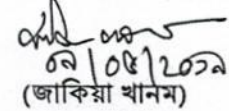 ০৯/০৫/২০১৯
(জাকিয়া খানম)